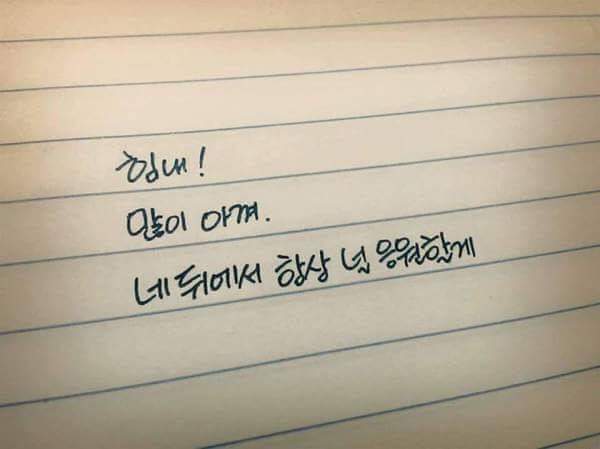 힘내!
많이 아껴.
네 뒤에서 항상 널 응원할게